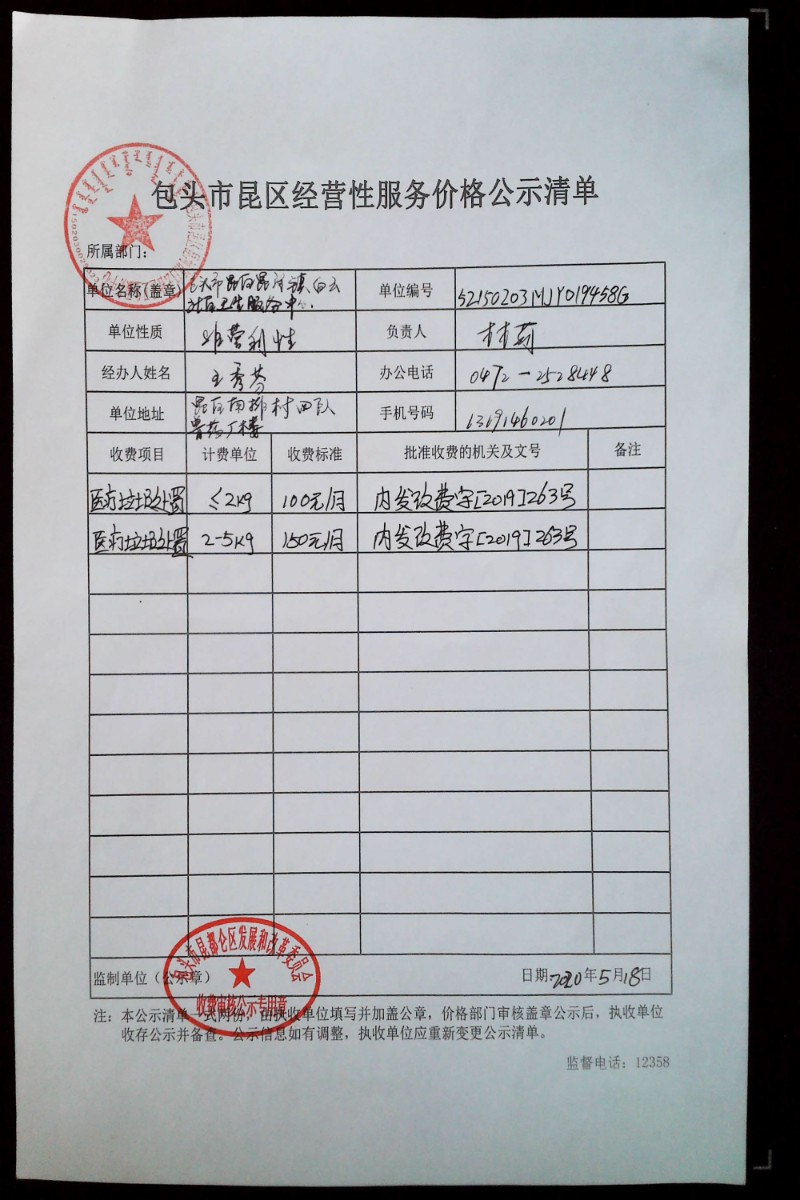 包头市昆区经营性服务价格公示清单
所属部门：
单位名称（盖章） 包头市昆区昆河镇白云 单位编号 52150203MJY019458G
社区卫生服务中心.
单位性质 非营利性 负责人 林莉
经办人姓名 王秀芬 办公电话 0472-2528448
单位地址 昆区南排村四队 手机号码 13191460201
兽药厂楼
收费项目 计费单位 收费标准 批准收费的机关及文号 备注
医疗垃圾处置 ≤2kg 100元/月 内发改费字[2019]263号
医疗垃圾处置 2-5kg 150元/月 内发改费字[2019]263号
包头市昆都仑区发展和改革委员会
收费审核公示专用章
监制单位（公示章） 日期2020年5月18日
注：本公示清单一式两份，由执收单位填写并加盖公章，价格部门审核盖章公示后，执收单位
收存公示并备查。公示信息如有调整，执收单位应重新变更公示清单。
监督电话：12358